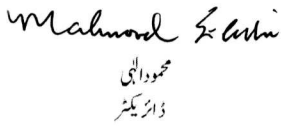 Mahmood
محمود الٰہی
ڈائریکٹر